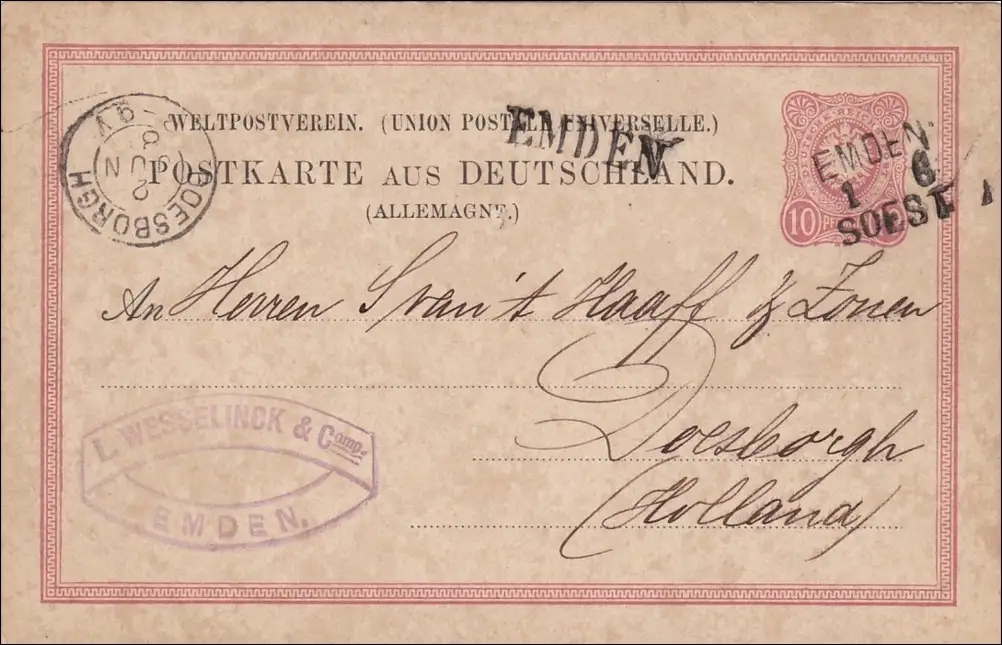 WELTPOSTVEREIN. (UNION POSTALE UNIVERSELLE.)
POSTKARTE AUS DEUTSCHLAND.
(ALLEMAGNE.)
EMDEN
DOESBORGH
2 JUN
DEUTSCHE REICHS
10 PF
EMDEN
1 6
SOEST
An Herren S van't Haaff & Zonen
Doesborgh
(Holland)
L. WESSELINCK & Comp.
EMDEN.